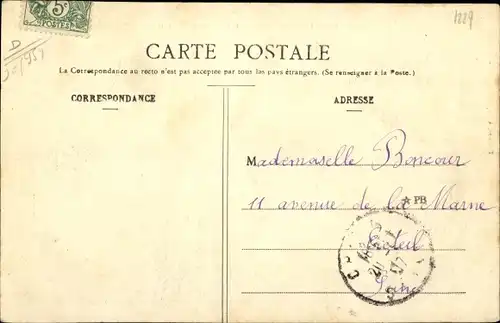 5c
POSTES
1229
CARTE POSTALE
La Correspondance au recto n'est pas acceptée par tous les pays étrangers. (Se renseigner à la Poste.)
CORRESPONDANCE
ADRESSE
Mademoiselle Boncour
11 avenue de la Marne
PB
Créteil
Seine